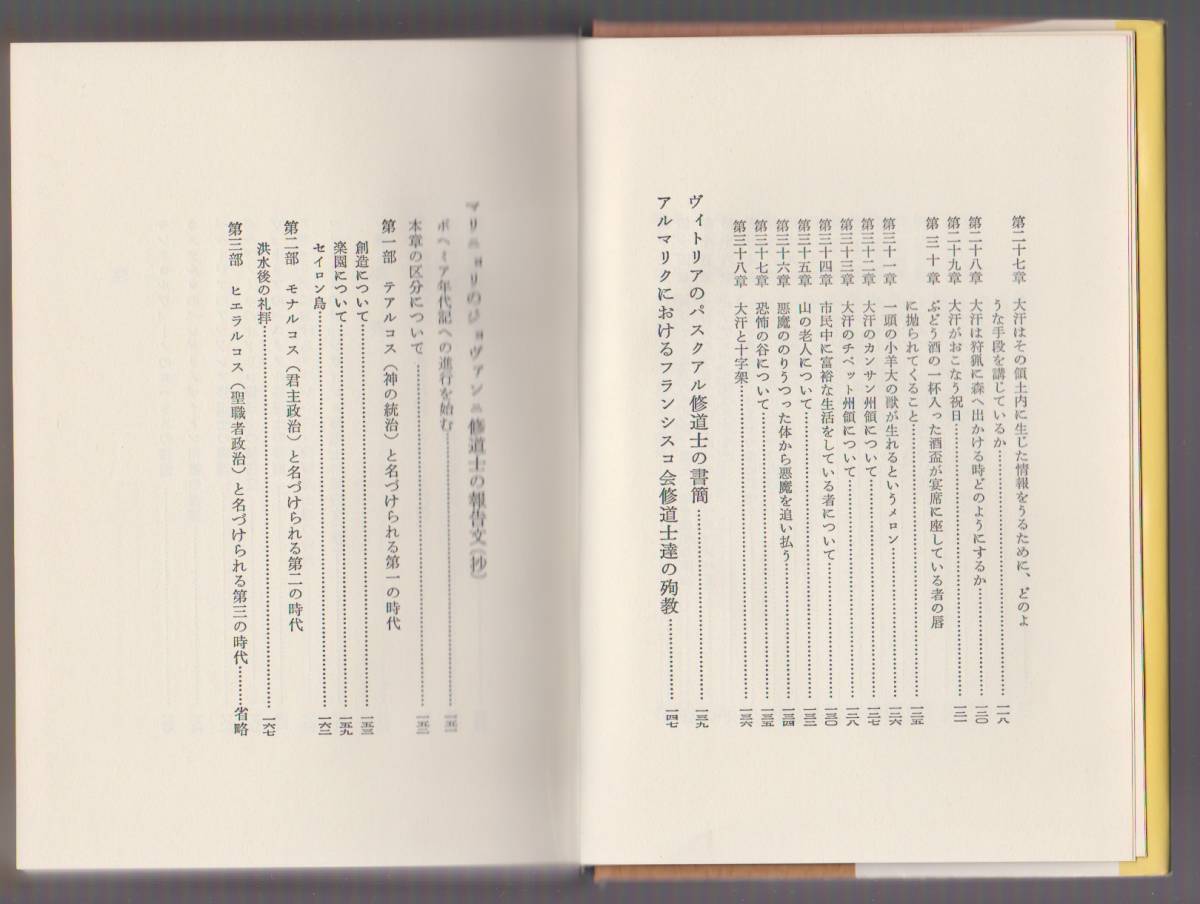 第二十七章　大汗はその領土内に生じた情報をうるために、どのよ
うな手段を講じているか…………一一八
第二十八章　大汗は狩猟に森へ出かける時どのようにするか…………一二〇
第二十九章　大汗がおこなう祝日…………一二一
第三十章　ぶどう酒の一杯入った酒盃が宴席に座している者の唇
に拋られてくること…………一二五
第三十一章　一頭の小羊大の獣が生れるというメロン…………一二六
第三十二章　大汗のカンサン州領について…………一二七
第三十三章　大汗のチベット州領について…………一二八
第三十四章　市民中に富裕な生活をしている者について…………一三〇
第三十五章　山の老人について…………一三二
第三十六章　悪魔ののりうつった体から悪魔を追い払う…………一三四
第三十七章　恐怖の谷について…………一三五
第三十八章　大汗と十字架…………一三六
ヴィトリアのパスクアル修道士の書簡…………一三九
アルマリクにおけるフランシスコ会修道士達の殉教…………一四七
マリニョリのジョヴァンニ修道士の報告文（抄）
ボヘミア年代記への進行を始む…………一五一
本章の区分について…………一五二
第一部　テアルコス（神の統治）と名づけられる第一の時代
創造について…………一五三
楽園について…………一五九
セイロン島…………一六二
第二部　モナルコス（君主政治）と名づけられる第二の時代
洪水後の礼拝…………一六七
第三部　ヒエラルコス（聖職者政治）と名づけられる第三の時代………省略